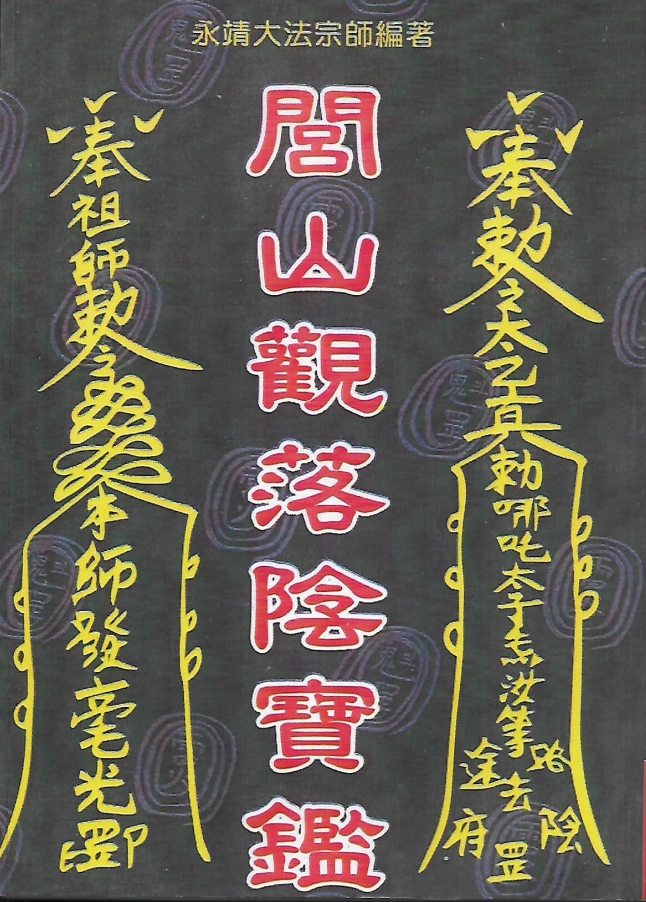 永靖大法宗師編著
奉勅令
太乙真
勅哪吒太子為汝筆
路途去陰府罡
閭山觀落陰寶鑑
奉祖師勅令
本師發毫光罡印